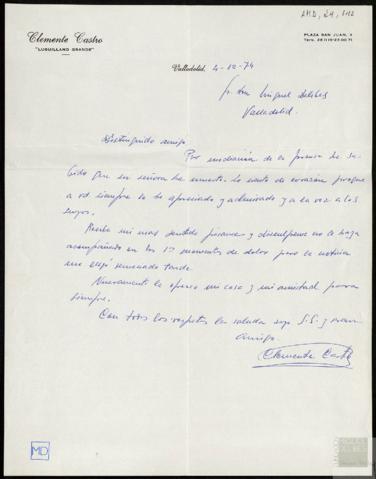 AMD, 24, 112
Clemente Castro
"LUGUILLANO GRANDE"
PLAZA SAN JUAN, 5
Valladolid, 4-12-74
Sr. Don Miguel Delibes
Valladolid.
Distinguido amigo
Por mediación de la prensa he sa-
bido que su señora ha muerto. lo siento de corazón porque
a vd siempre le he apreciado y admirado y a la vez a los
suyos.
Reciba mi mas sentido pésame y disculpeme no le haya
acompañado en los 1os momentos de dolor pero la noticia
me llegó demasiado tarde.
Nuevamente le ofrezco mi casa y mi amistad para
siempre.
Con todos los respetos le saluda suyo S.S. y
amigo.
Clemente Castro
MD